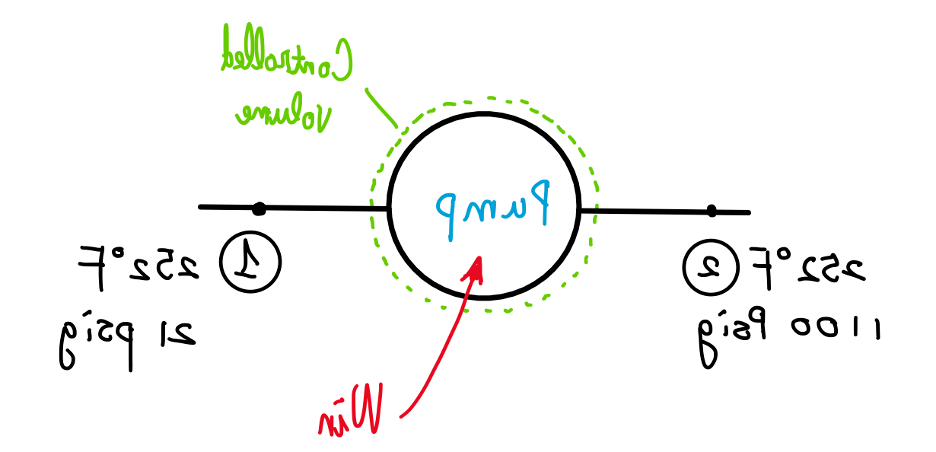 Controlled
Volume
Pump
1 252°F
21 psig
2 252°F
1100 Psig
Win